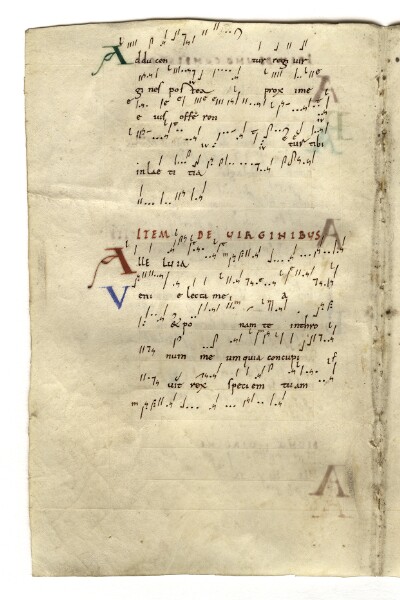 Adducen tur regi vir
gines postea proxime
e ius offeren
tur tibi
in lae ti tia
ITEM DE VIRGINIBUS
Alle luia
Veni electa mea
& po nam te inthro
num me um quia concupi
uit rex speciem tuam